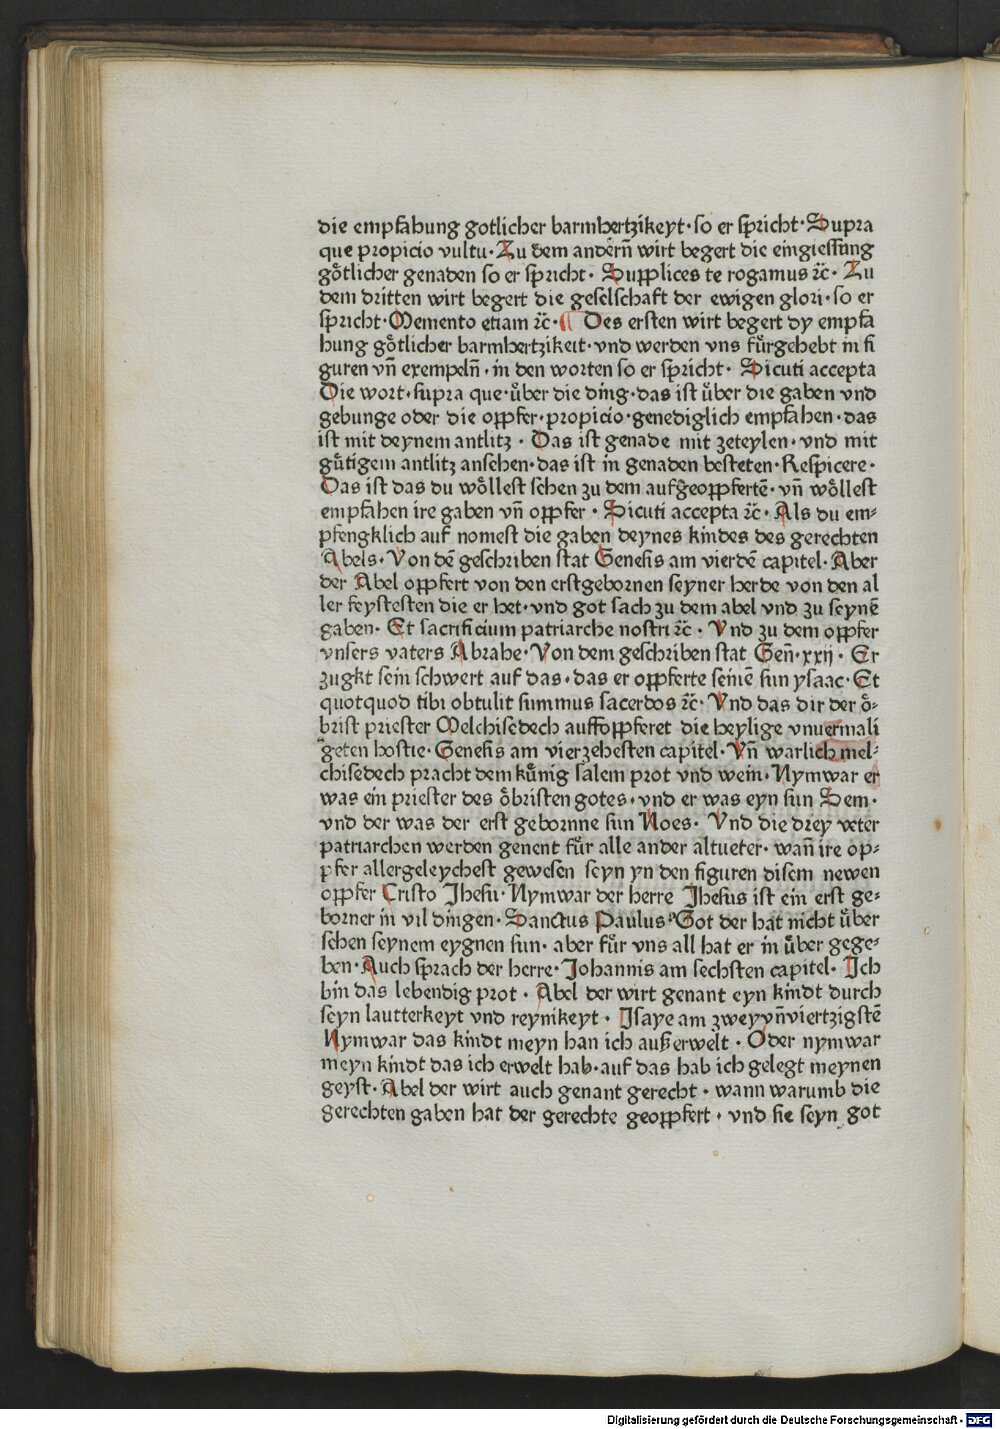 die empfahung gotlicher barmhertzikeyt· so er spricht· Supra
que propicio vultu· Zu dem andern̄ wirt begert die eingiessung
goͤtlicher genaden so er spricht· Supplices te rogamus ⁊c̄· Zu
dem dritten wirt begert die geselschaft der ewigen glori· so er
spricht· Memento etiam ⁊c̄· ¶ Des ersten wirt begert dy empfa
hung goͤtlicher barmhertzikeit· vnd werden vns fuͤrgehebt in fi
guren vn̄ exempeln̄· in den worten so er spricht· Sicuti accepta
Die wort· supra que· uͤber die ding· das ist uͤber die gaben vnd
gebunge oder die oppfer· propicio· genediglich empfahen· das
ist mit deynem antlitz· Das ist genade mit zeteylen· vnd mit
guͤtigem antlitz ansehen· das ist in genaden besteten· Respicere·
Das ist das du woͤllest sehen zu dem aufgeoppfertē· vn̄ woͤllest
empfahen ire gaben vn̄ oppfer· Sicuti accepta ⁊c̄· Als du em⸗
pfengklich auf nomest die gaben deynes kindes des gerechten
Abels· Von dē geschriben stat Genesis am vierdē capitel· Aber
der Abel oppfert von den erstgebornen seyner herde von den al
ler feystesten die er het· vnd got sach zu dem abel vnd zu seynē
gaben· Et sacrificium patriarche nostri ⁊c̄· Vnd zu dem oppfer
vnsers vaters Abrahe· Von dem geschriben stat Gen̄· xxij· Er
zugkt sein schwert auf das· das er oppferte seinē sun ysaac· Et
quotquod tibi obtulit summus sacerdos ⁊c̄· Vnd das dir der oͤ⸗
brist priester Melchisedech auffoppferet die heylige vnuermali
geten hostie· Genesis am vierzehesten capitel· Vn̄ warlich mel⸗
chisedech pracht dem kuͤnig salem prot vnd wein· Nymwar er
was ein priester des oͤbristen gotes· vnd er was eyn sun Sem·
vnd der was der erst gebornne sun Noes· Vnd die drey veter
patriarchen werden genent fuͤr alle ander altueter· wan̄ ire op⸗
pfer allergeleychest gewesen seyn yn den figuren disem newen
oppfer Cristo Jhesu· Nymwar der herre Jhesus ist ein erst ge⸗
borner in vil dingen· Sanctus Paulus· Got der hat nicht uͤber
sehen seynem eygnen sun· aber fuͤr vns all hat er in uͤber gege⸗
ben· Auch sprach der herre· Johannis am sechsten capitel· Ich
bin das lebendig prot· Abel der wirt genant eyn kindt durch
seyn lautterkeyt vnd reynikeyt· Jsaye am zweyvn̄viertzigstē
Nymwar das kindt meyn han ich außerwelt· Oder nymwar
meyn kindt das ich erwelt hab· auf das hab ich gelegt meynen
geyst· Abel der wirt auch genant gerecht· wann warumb die
gerechten gaben hat der gerechte geoppfert· vnd sie seyn got
Digitalisierung gefördert durch die Deutsche Forschungsgemeinschaft - DFG